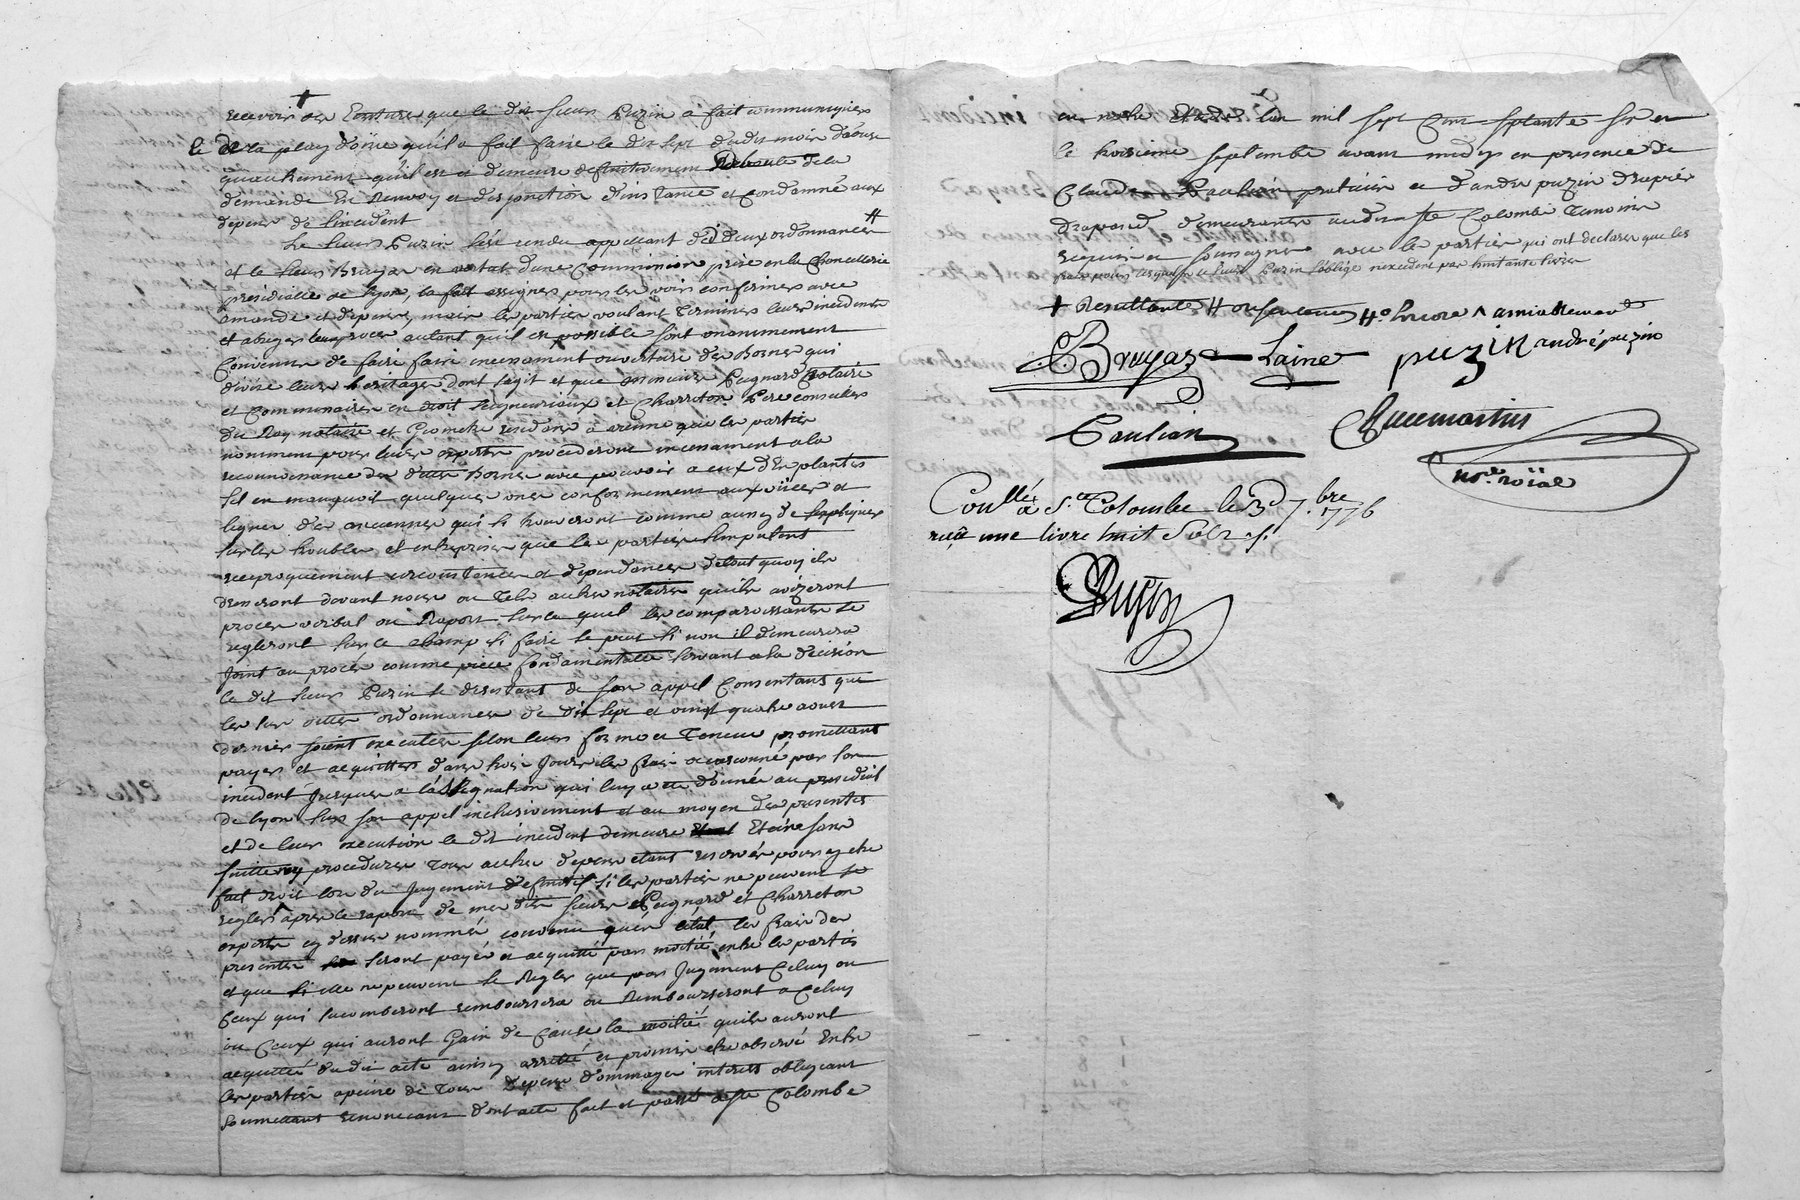 recevoir des Enture que le dit sieur Puzin a fait communiquer
le de la playdoirie qu'il a fait faire le dix sept dudit mois d'aoust
qu'autrement qu'il est et demeure definitivement Deboute de la
demande En Renvoy et disjonction d'instance et Condamné aux
depens de l'incident
Le sieur Puzin s'est rendu appellant de deux ordonnances #
et le sieur Bruyas en vertu d'une Commission prise en la Chancellerie
presidialle de lyon, la fait assigner pour les voir confirmer avec
amande et depens, mais les parties voulant Terminer leurs incidents
et abreger leur procès autant qu'il est possible sont unanimement
Convenus de faire faire incessament ouverture des Bornes qui
divise leurs heritages dont s'agit et que messieurs Peignard Notaire
et Commissaire en droit seigneuriaux et Charreton Pere conseiller
du Roy notaire et Geometre residans a vienne que les parties
nomment pour leurs experts procederont incessament a la
reconnoissance des dittes Bornes avec pouvoir a eux d'En planter
s'il en manquoit quelques unes conformement aux vües et
lignes des anciennes qui si trouveront comme aussy de s'expliquer
sur les troubles et entreprises que les parties s'imputent
reciproquement circonstances et dependances de tout quoy ils
dresseront devant nous ou Tels autres notaires qu'ils aviseront
procès verbal ou Raport sur le quel les comparoissants se
regleront sur le champ si faire se peut si non il demeurera
joint au procés comme piece fondamentalle servant a la décision
le dit sieur Puzin se desistant de son appel Consentant que
les sus dittes ordonnances de dix sept et vingt quatre aoust
dernier soient executées selon leurs forme et Teneur promettant
payer et acquitter dans huit jours les frais occasionné par son
incident jusques a l'assignation qui luy a été donnée au presidial
de lyon sur son appel inclusivement et au moyen des presentes
et de leur execution le dit incident demeure Eteint sans
suitte ny procedures tous autres depens etant reservés pour y etre
fait droit lors du jugement definitif si les parties ne peuvent se
regler apres le raport de mes dits sieurs Peignard et Charreton
experts cy dessus nommés convenu qu'en l'etat les frais des
presentes seront payés et acquitté par moitié entre les parties
et que si elle ne peuvent se Regler que par jugement Celuy ou
Ceux qui sucomberont remboursera ou Rembourseront a Celuy
ou Ceux qui auront Gain de Cause la moitié qu'ils auront
acquitté du dit acte ainsy arretté et promis etre observé Entre
les parties a peine de Tous depens dommages interets obligeant
soumettant renonçant dont acte fait et passé a Ste Colombe
en notre Etude l'an mil sept Cent septante six et
le troisieme septembre avant midy en presence de
Claude Paulian praticien et d'andré puzin drapier
Drapant demeurants audit Ste Colombe Temoins
requis et soussignés avec les parties qui ont declarer que les
frais pour lesquels le sieur Puzin s'oblige n'excedent pas huitante livres
+ Resultantes # ou sentences #o Encore ^ amiablement
Bruyas Lainé puzin andré puzin
Paulian Guillemartin
no.re roial
Conllé a S.te Colombe le 3 7.bre 1776
reçû une livre huit sols
Dugon